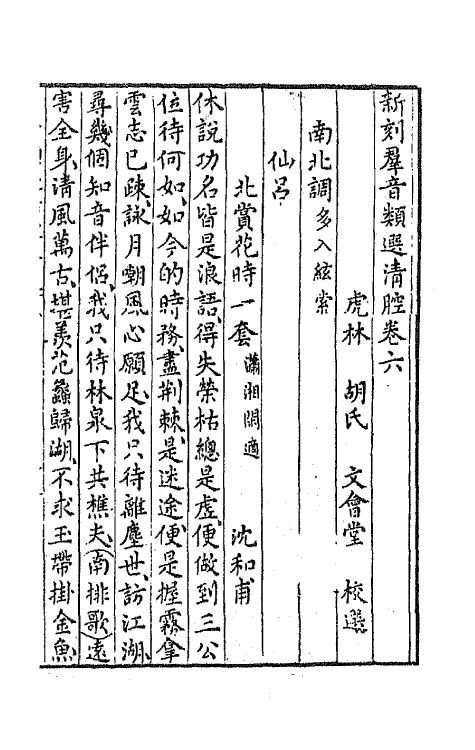 新刻羣音類選清腔卷六
虎林 胡氏 文會堂 校選
南北調多入絃索
仙呂
北賞花時一套 瀟湘閒適 沈和甫
休說功名皆是浪語、得失榮枯總是虛、便做到三公
位待何如、如今的時務、盡荆棘、是迷途、便是握霧拿
雲志已疎、詠月嘲風心願足、我只待離塵世、訪江湖、
尋幾個知音伴侣、我只待林泉下共樵夫、(南排歌)遠
害全身、清風萬古、堪羨范蠡歸湖、不求玉帶掛金魚、